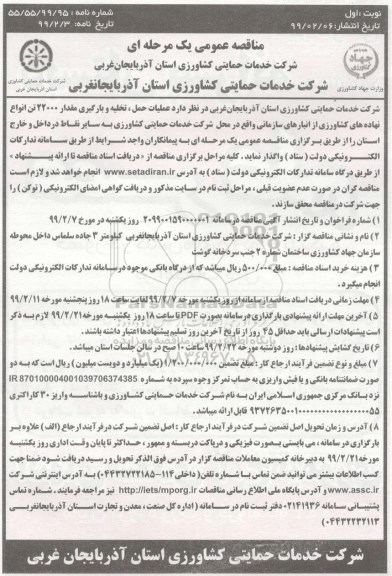 نوبت: اول
تاریخ انتشار: ۹۹/۰۲/۰۶
شماره نامه: ۵۵/۵۵/۹۹/۹۵
تاریخ نامه: ۹۹/۲/۳
مناقصه عمومی یک مرحله ای
شرکت خدمات حمایتی کشاورزی استان آذربایجان‌غربی
شرکت خدمات حمایتی کشاورزی استان آذربایجانغربی
وزارت جهاد کشاورزی
شرکت خدمات حمایتی کشاورزی استان آذربایجان غربی
شرکت خدمات حمایتی کشاورزی استان آذربایجان‌غربی در نظر دارد عملیات حمل، تخلیه و بارگیری مقدار ۲۲۰۰۰ تن انواع
نهاده های کشاورزی از انبارهای سازمانی واقع در محل شرکت خدمات حمایتی کشاورزی به سایر نقاط در داخل و خارج
استان را از طریق برگزاری مناقصه عمومی یک مرحله ای به پیمانکاران واجد شرایط از طریق سامانه تدارکات
الکترونیکی دولت (ستاد) واگذار نماید. کلیه مراحل برگزاری مناقصه از «دریافت اسناد مناقصه تا ارائه پیشنهاد»
از طریق درگاه سامانه تدارکات الکترونیکی دولت (ستاد) به آدرس www.setadiran.ir انجام خواهد شد و لازم است
مناقصه گران در صورت عدم عضویت قبلی، مراحل ثبت نام در سایت مذکور و دریافت گواهی امضای الکترونیکی (توکن) را
جهت شرکت در مناقصه محقق سازند.
۱) شماره فراخوان و تاریخ انتشار آگهی مناقصه در سامانه ۲۰۹۹۰۰۱۵۹۰۰۰۰۰۰۱ روز یکشنبه در مورخ ۹۹/۲/۷
۲) نام و نشانی مناقصه گزار: شرکت خدمات حمایتی کشاورزی استان آذربایجانغربی کیلومتر ۳ جاده سلماس داخل محوطه
سازمان جهاد کشاورزی ساختمان شماره ۲ جنب سردخانه گوشت
۳) هزینه خرید اسناد مناقصه: مبلغ ۵۰۰/۰۰۰ ریال میباشد که از درگاه بانکی موجود در سامانه تدارکات الکترونیکی دولت
انجام میگیرد.
۴) مهلت زمانی دریافت اسناد مناقصه از سامانه از روز یکشنبه مورخه ۹۹/۲/۷ لغایت ساعت ۱۸ روز پنجشنبه مورخه ۹۹/۲/۱۱
۵) آخرین مهلت ارائه پیشنهادی بارگذاری در سامانه بصورت PDF تا ساعت ۱۸ روز یکشنبه مورخه ۹۹/۲/۲۱ لازم به ذکر
است پیشنهادات ارسالی باید حداقل ۴۵ روز از تاریخ آخرین روز تسلیم پیشنهادها اعتبار داشته باشند.
۶) تاریخ گشایش پیشنهادها: روز دوشنبه مورخه ۹۹/۲/۲۲ ساعت ۱۰ صبح در سالن جلسات استان میباشد.
۷) مبلغ و نوع تضمین فرآیند ارجاع کار: مبلغ تضمین ۱/۲۰۰/۰۰۰/۰۰۰ (یک میلیارد و دویست میلیون) ریال است که به دو
صورت ضمانتنامه بانکی و یا فیش واریزی به حساب تمرکز وجوه سپرده به شماره IR 870100004001039706374385
نزد بانک مرکزی جمهوری اسلامی ایران به نام شرکت خدمات حمایتی کشاورزی و باشناسه واریز ۳۰ کاراکتری
قابل ارائه میباشد.
۸) آدرس و زمان تحویل اصل تضمین شرکت در فرآیند ارجاع کار: اصل تضمین شرکت در فرآیند ارجاع کار (الف) علاوه بر
بارگزاری در سامانه، می بایستی بصورت فیزیکی و درپاکت دربسته و ممهور، حداکثر تا پایان وقت اداری روز یکشنبه
مورخه ۹۹/۲/۲۱ به دبیرخانه کمیسیون معاملات مناقصه گزار در آدرس فوق الذکر تحویل و رسید دریافت شود ضمنا جهت
کسب اطلاعات بیشتر می توانید ضمن تماس با شماره تلفن (داخلی ۱۱۴-۰۴۴۳۲۷۲۲۱۸۵) به آدرس اینترنتی شرکت
www.assc.ir و آدرس پایگاه ملی اطلاع رسانی مناقصات http://iets/mporg.ir نیز مراجعه فرمایند. شماره تماس
پشتیبانی سامانه ۰۲۱۴۱۹۳۶ دفتر ثبت نام در سامانه (اداره کل صنعت، معدن و تجارت استان آذربایجانغربی
۰۴۴۳۲۲۳۲۱۱۳)
شرکت خدمات حمایتی کشاورزی استان آذربایجان غربی